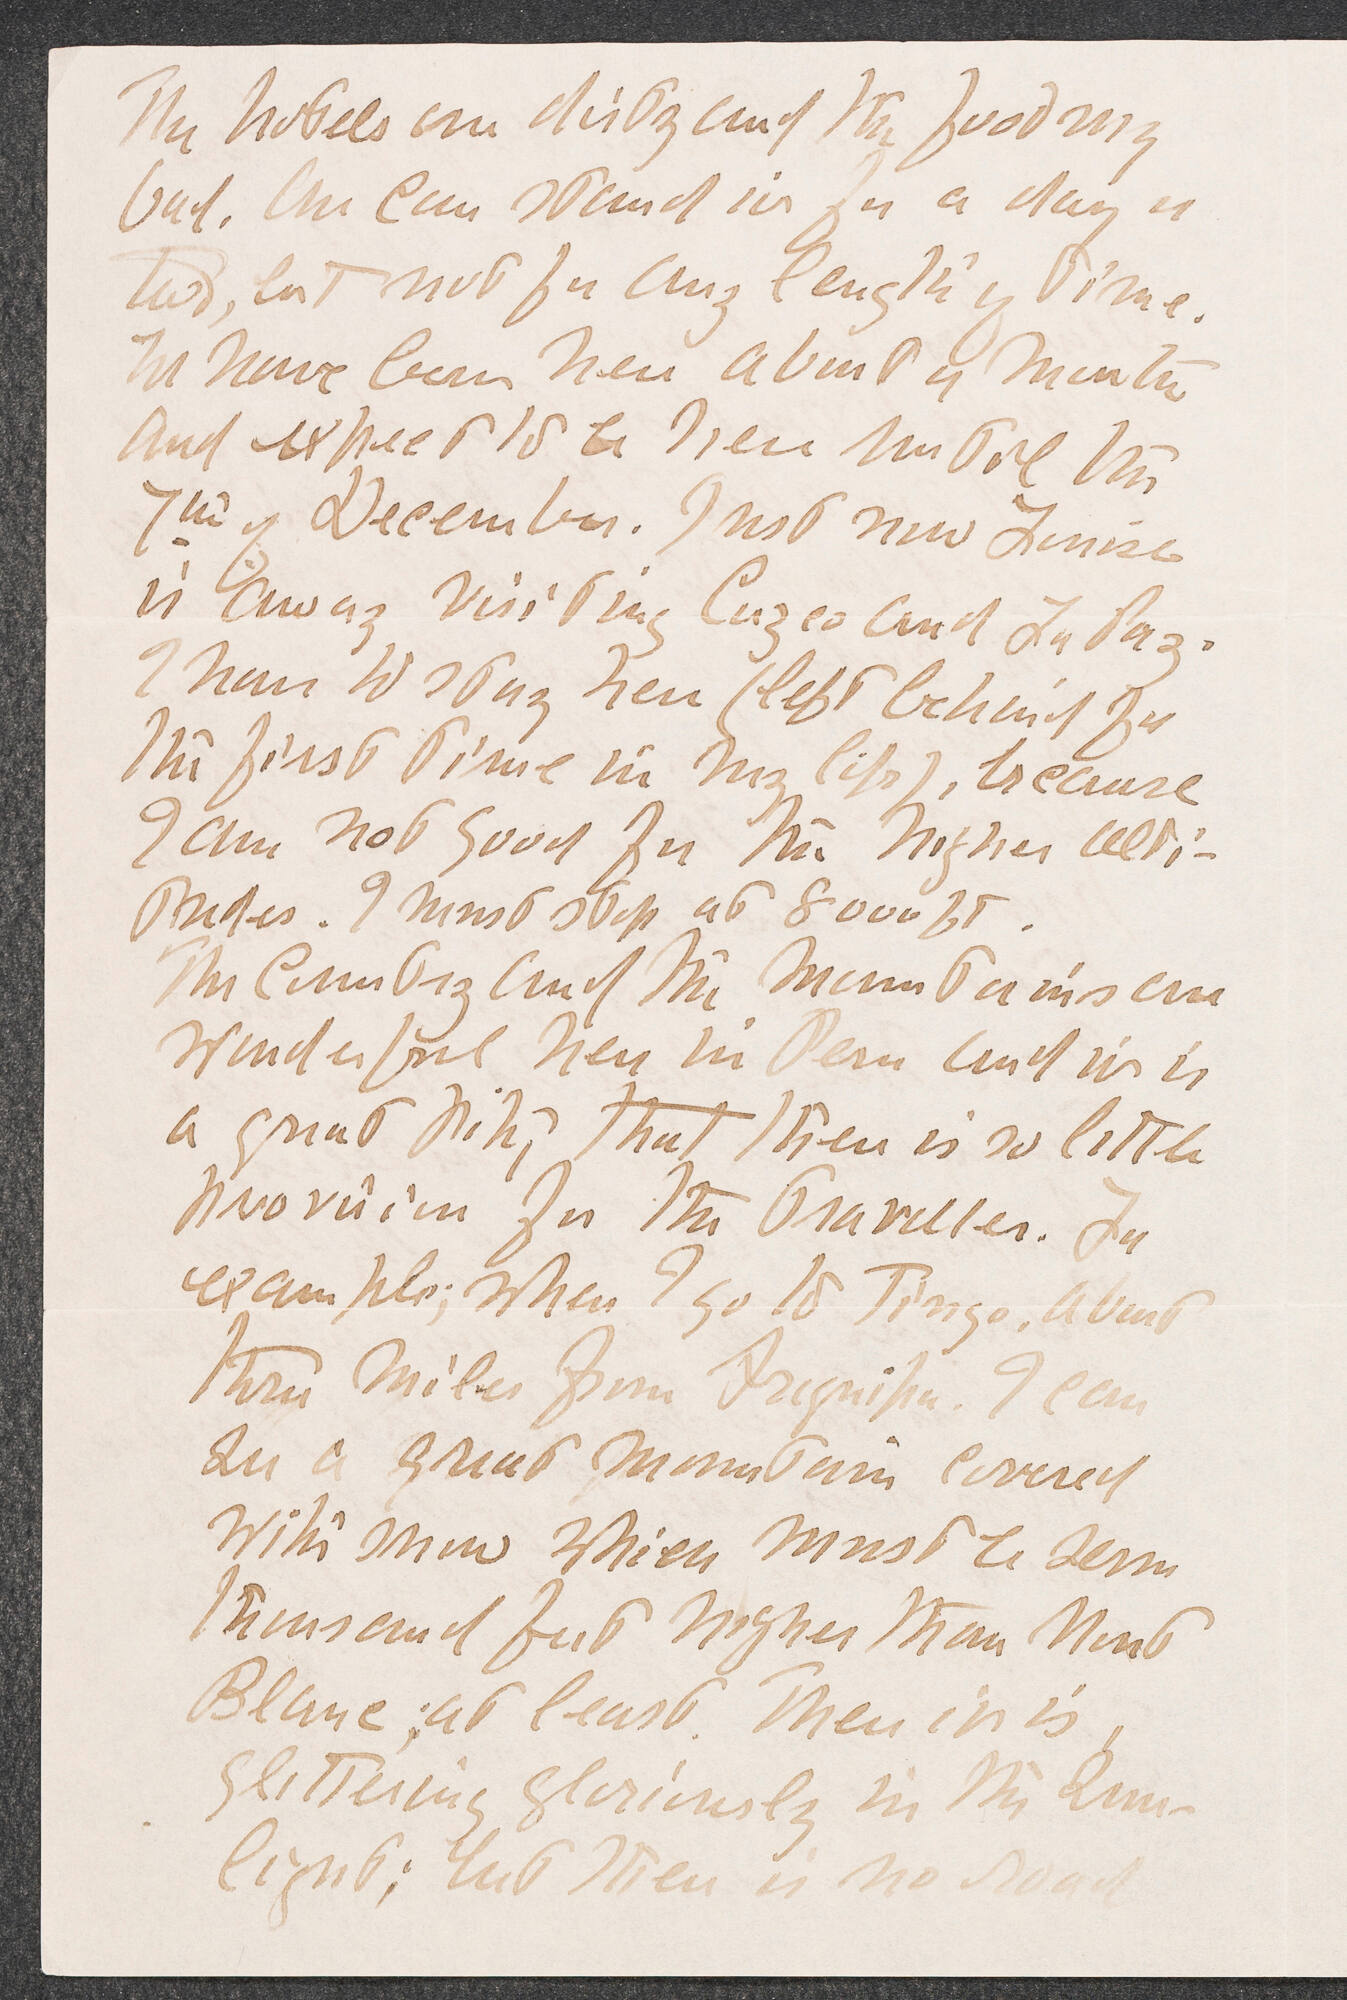 The hotels are dirty and the food very
bad. One can stand it for a day or
two, but not for any length of time.
We have been here about a month
and expect to be here until the
7th of December. Just now Louise
is away visiting Cuzco and La Paz.
I have to stay here (left behind for
the first time in my life), because
I am not good for the higher alti-
tudes. I must stop at 8000 ft.
The country and the mountains are
wonderful here in Peru and it is
a great pity that there is so little
provision for the traveller. For
example; when I go to Tingo, about
three miles from Arequipa. I can
see a great mountain covered
with snow which must be seven
thousand feet higher than Mont
Blanc, at least. There it is,
glittering gloriously in the sun-
light; but there is no road